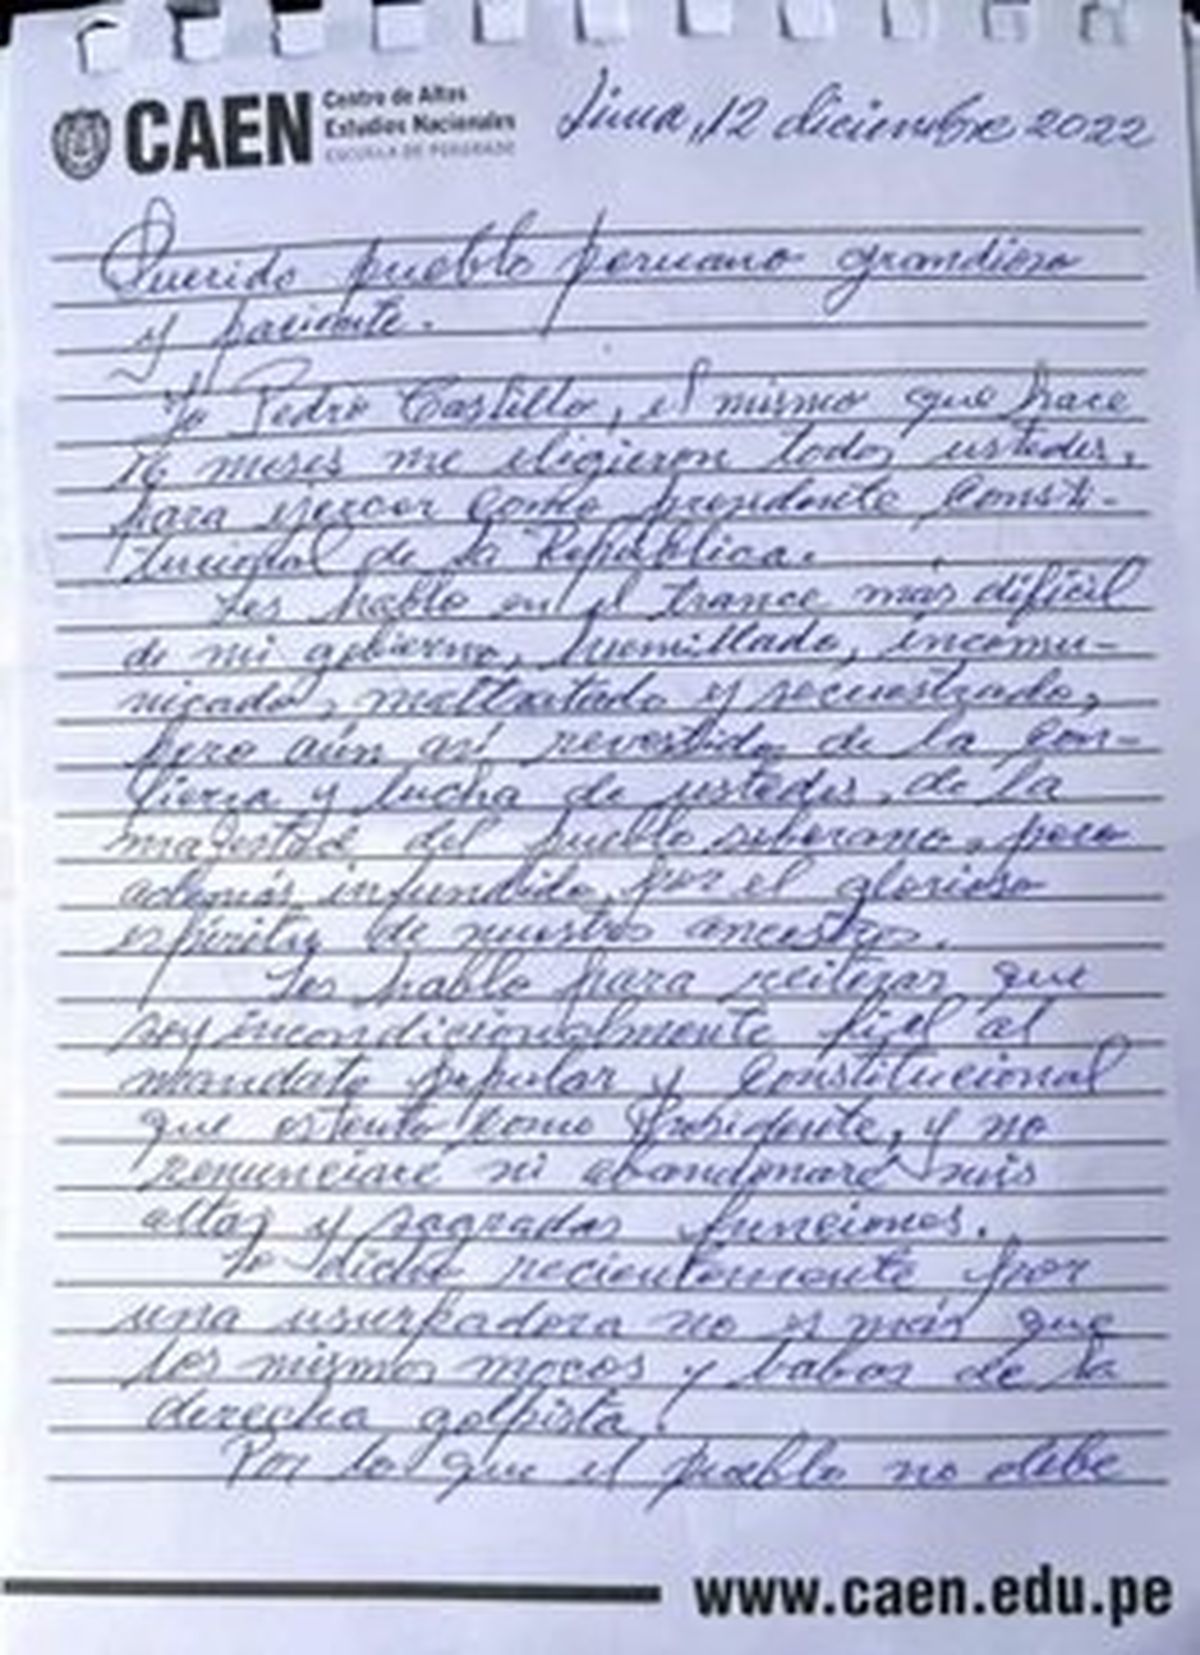 CAEN Centro de Altos
Estudios Nacionales
ESCUELA DE POSGRADO
Lima, 12 diciembre 2022
Querido pueblo peruano grandioso
y paciente.
Yo Pedro Castillo, el mismo que hace
16 meses me eligieron todos ustedes,
para ejercer como presidente Consti-
tucional de la República.
Les hablo en el trance más difícil
de mi gobierno, humillado, incomu-
nicado, maltratado y secuestrado,
pero aún así revestido de la con-
fianza y lucha de ustedes, de la
majestad del pueblo soberano, pero
además infundido por el glorioso
espíritu de nuestros ancestros.
Les hablo para reiterar que
soy incondicionalmente fiel al
mandato popular y Constitucional
que ostento como Presidente, y no
renunciaré ni abandonaré mis
altas y sagradas funciones.
Lo dicho recientemente por
una usurpadora no es más que
los mismos mocos y babas de la
derecha golpista.
Por lo que el pueblo no debe
www.caen.edu.pe